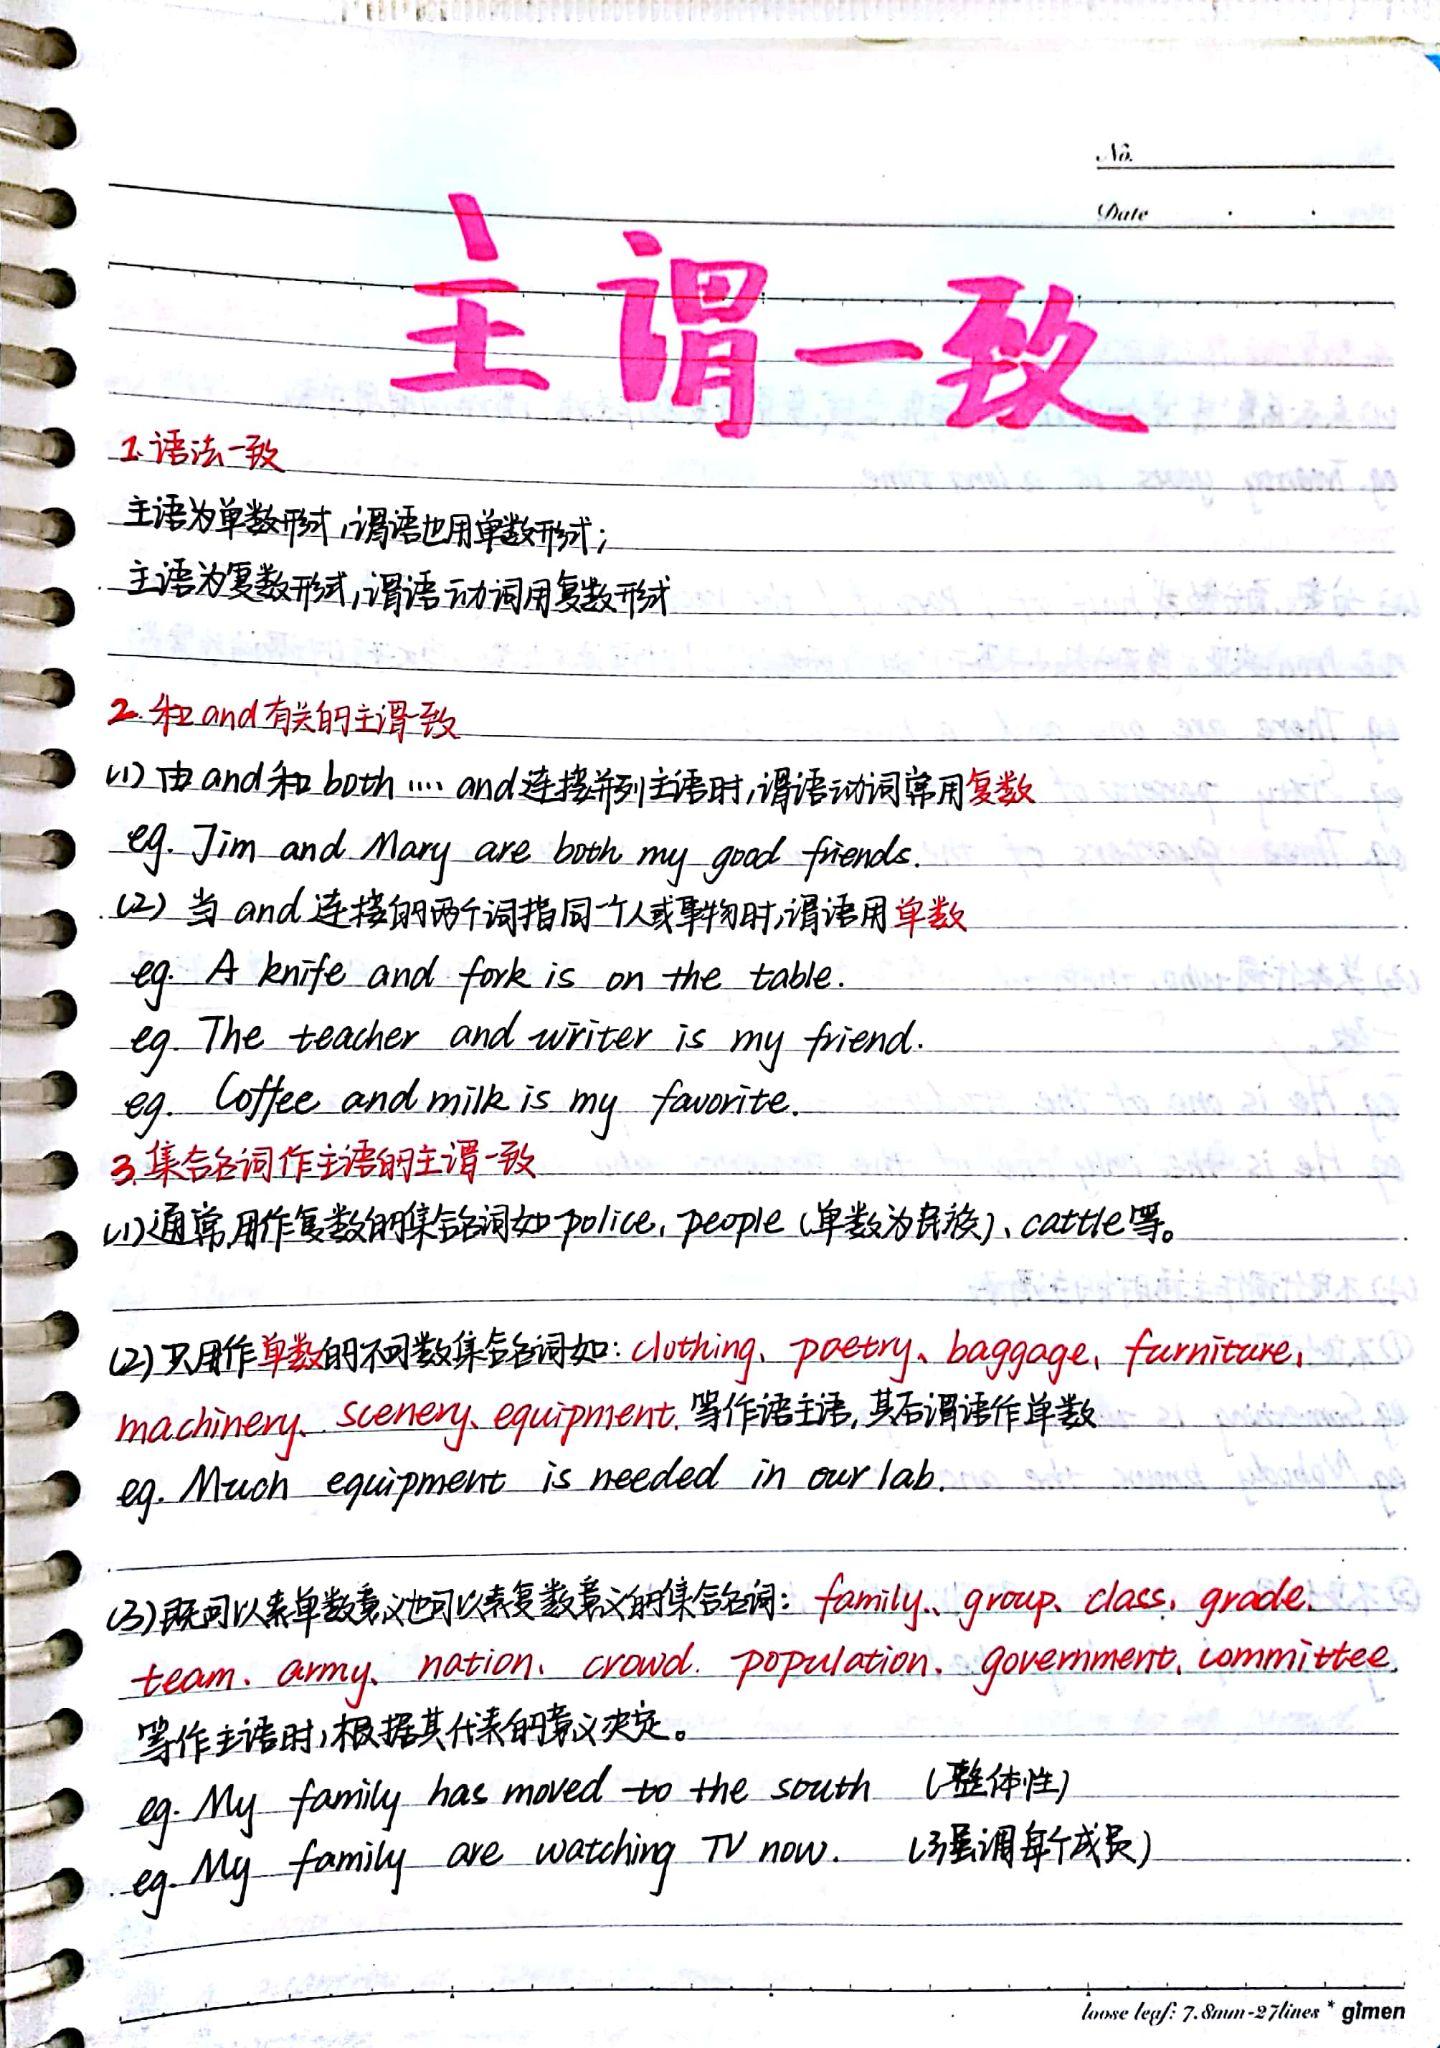 No.
Date
主谓一致
1.语法一致
主语为单数形式,谓语也用单数形式;
主语为复数形式,谓语动词用复数形式
2.和and有关的主谓一致
(1)由and和both....and连接并列主语时,谓语动词常用复数
eg. Jim and Mary are both my good friends.
(2)当and连接的两个词指同一个人或事物时,谓语用单数
eg. A knife and fork is on the table.
eg. The teacher and writer is my friend.
eg. Coffee and milk is my favorite.
3.集合名词作主语的主谓一致
(1)通常用作复数的集合名词如police、people(单数为民族)、cattle等。
(2)只用作单数的不可数集合名词如:clothing、poetry、baggage、furniture、
machinery、scenery、equipment.等作语主语,其后谓语作单数
eg. Much equipment is needed in our lab.
(3)既可以表单数意义也可以表复数意义的集合名词:family、group、class、grade、
team、army、nation、crowd、population、government、committee、
等作主语时,根据其代表的意义决定。
eg. My family has moved to the south (整体性)
eg. My family are watching TV now. (强调每个成员)
loose leaf: 7.8mm-27lines * gimen